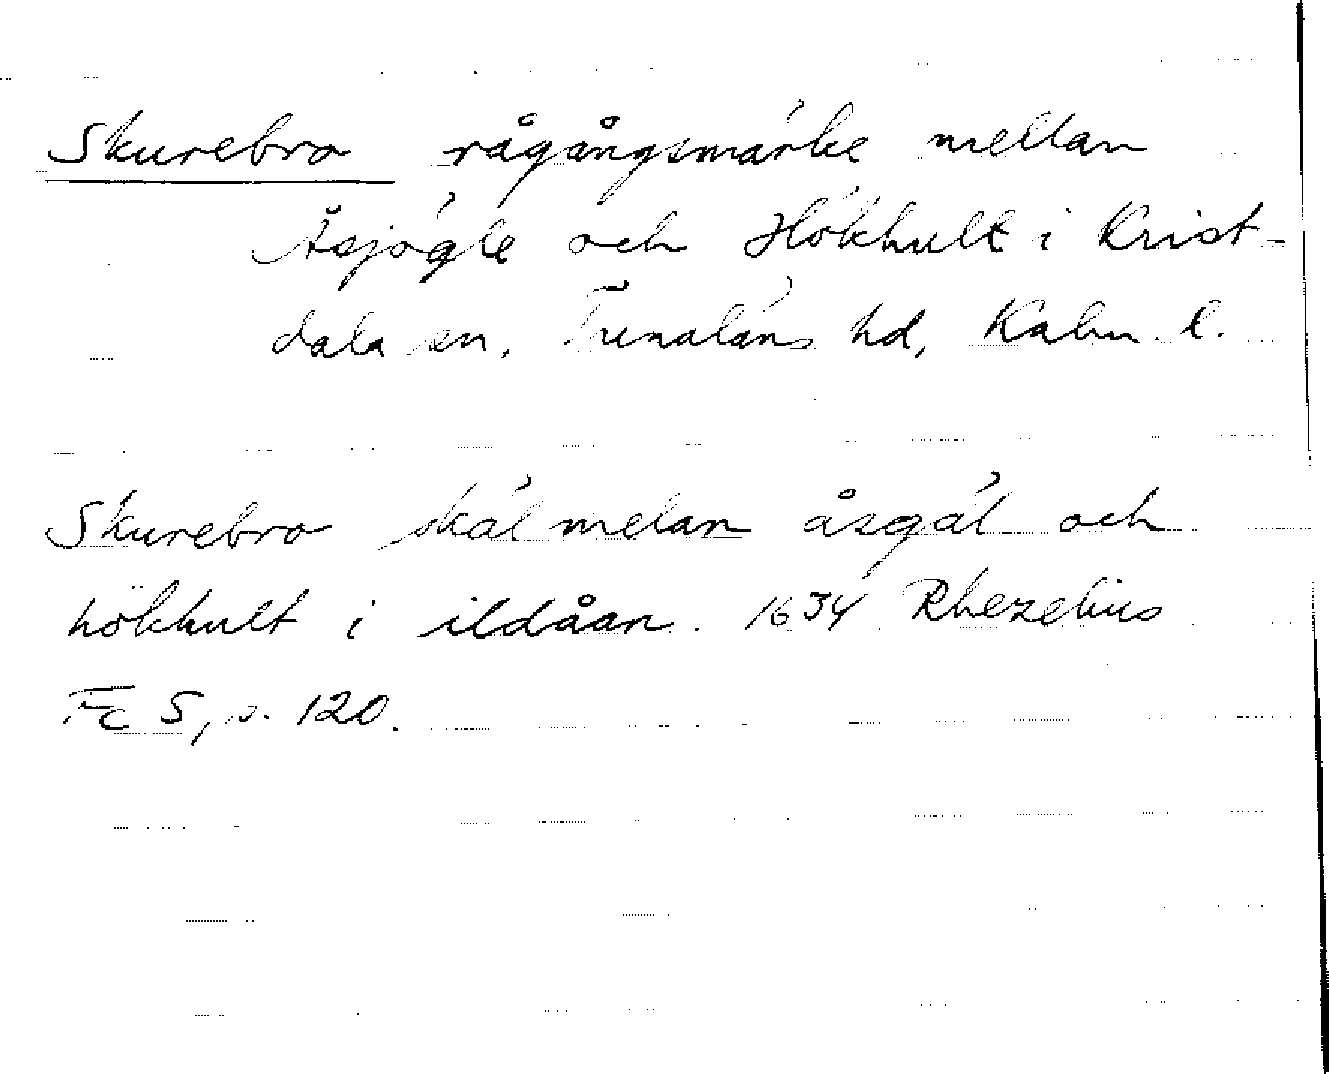 Skurebro rågångsmärke mellan
Åsjögle och Hökhult i Krist-
dala sn, Tunaläns hd, Kalm. l.
Skurebro skäl melan åsgäl och
hökhult i ildåan. 1634 Rhezelius
Fc 5, s. 120.